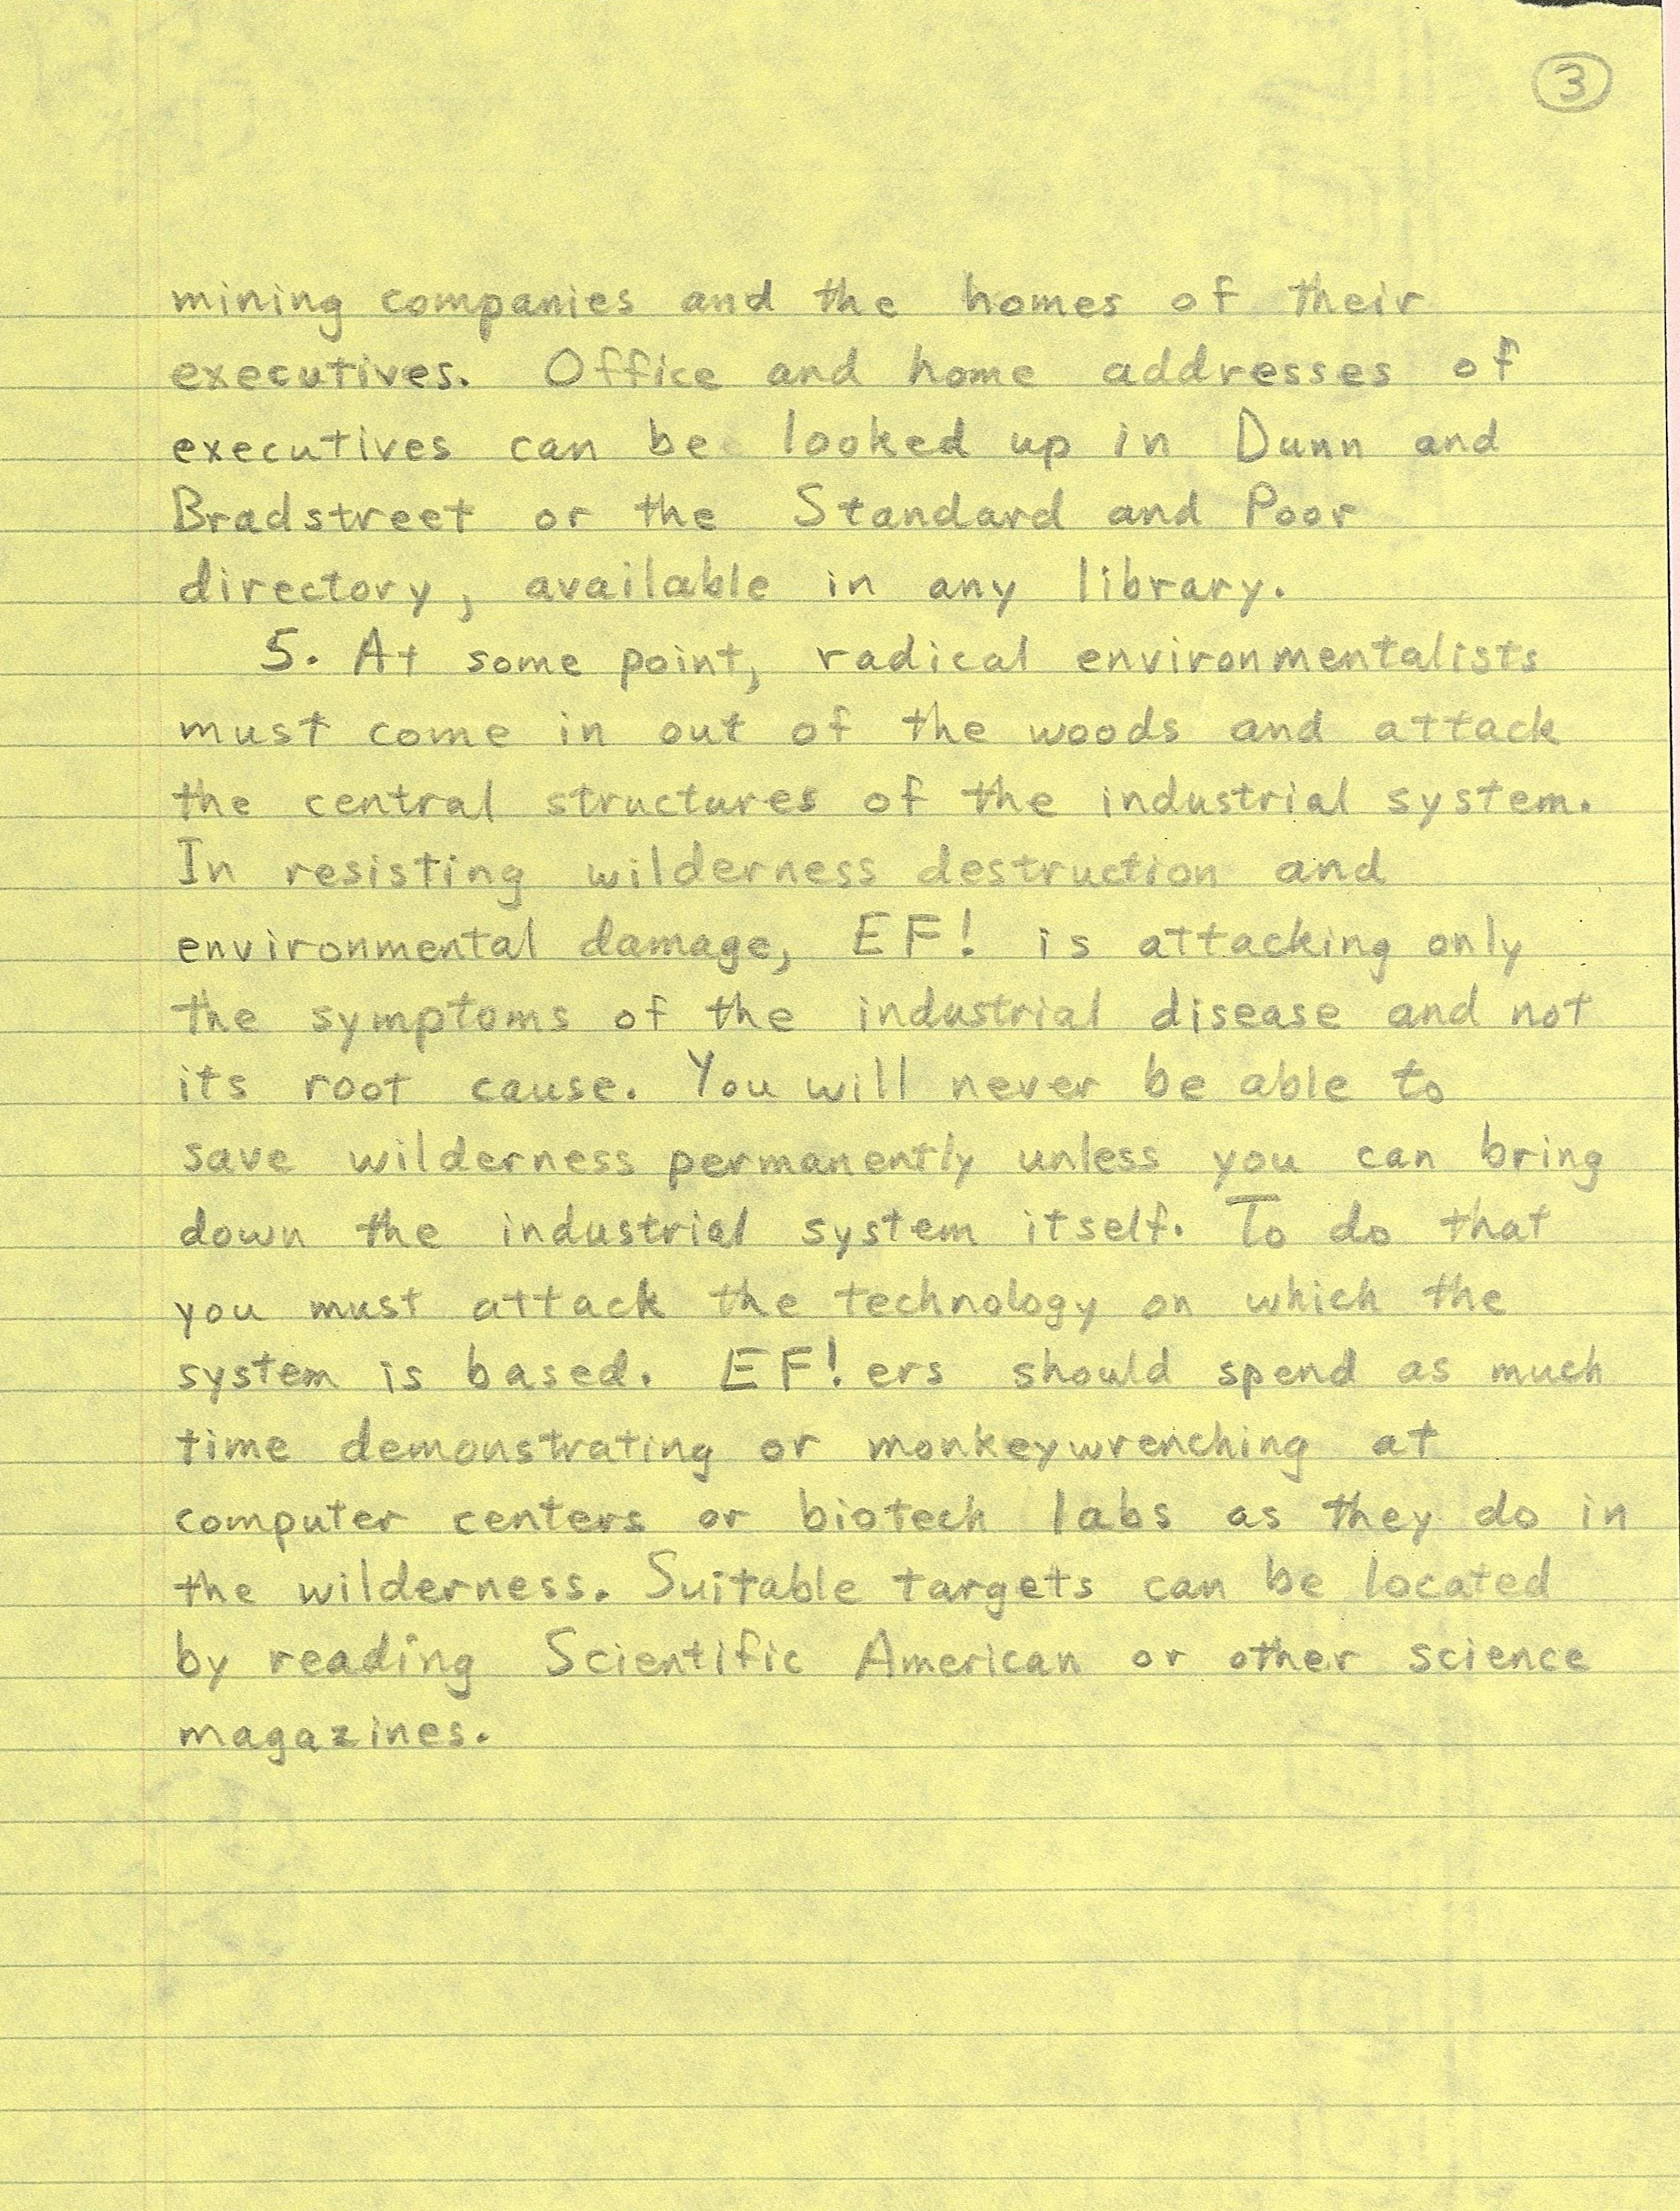 3
mining companies and the homes of their
executives. Office and home addresses of
executives can be looked up in Dunn and
Bradstreet or the Standard and Poor
directory, available in any library.
5. At some point, radical environmentalists
must come in out of the woods and attack
the central structures of the industrial system.
In resisting wilderness destruction and
environmental damage, EF! is attacking only
the symptoms of the industrial disease and not
its root cause. You will never be able to
save wilderness permanently unless you can bring
down the industrial system itself. To do that
you must attack the technology on which the
system is based. EF!ers should spend as much
time demonstrating or monkeywrenching at
computer centers or biotech labs as they do in
the wilderness. Suitable targets can be located
by reading Scientific American or other science
magazines.